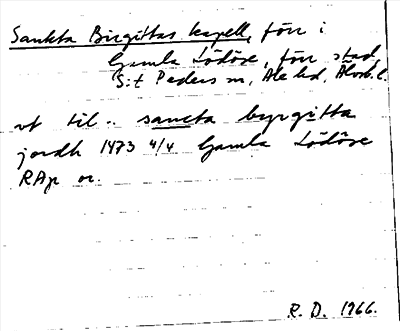 Sankta Birgittas kapell, förr i
Gamla Lödöse, förr stad
S:t Peders sn, Ale hd, Älvsb. l.
vt til .. sancta byrgitta
jordh 1473 4/4 Gamla Lödöse
RAp or.
R. D. 1966.